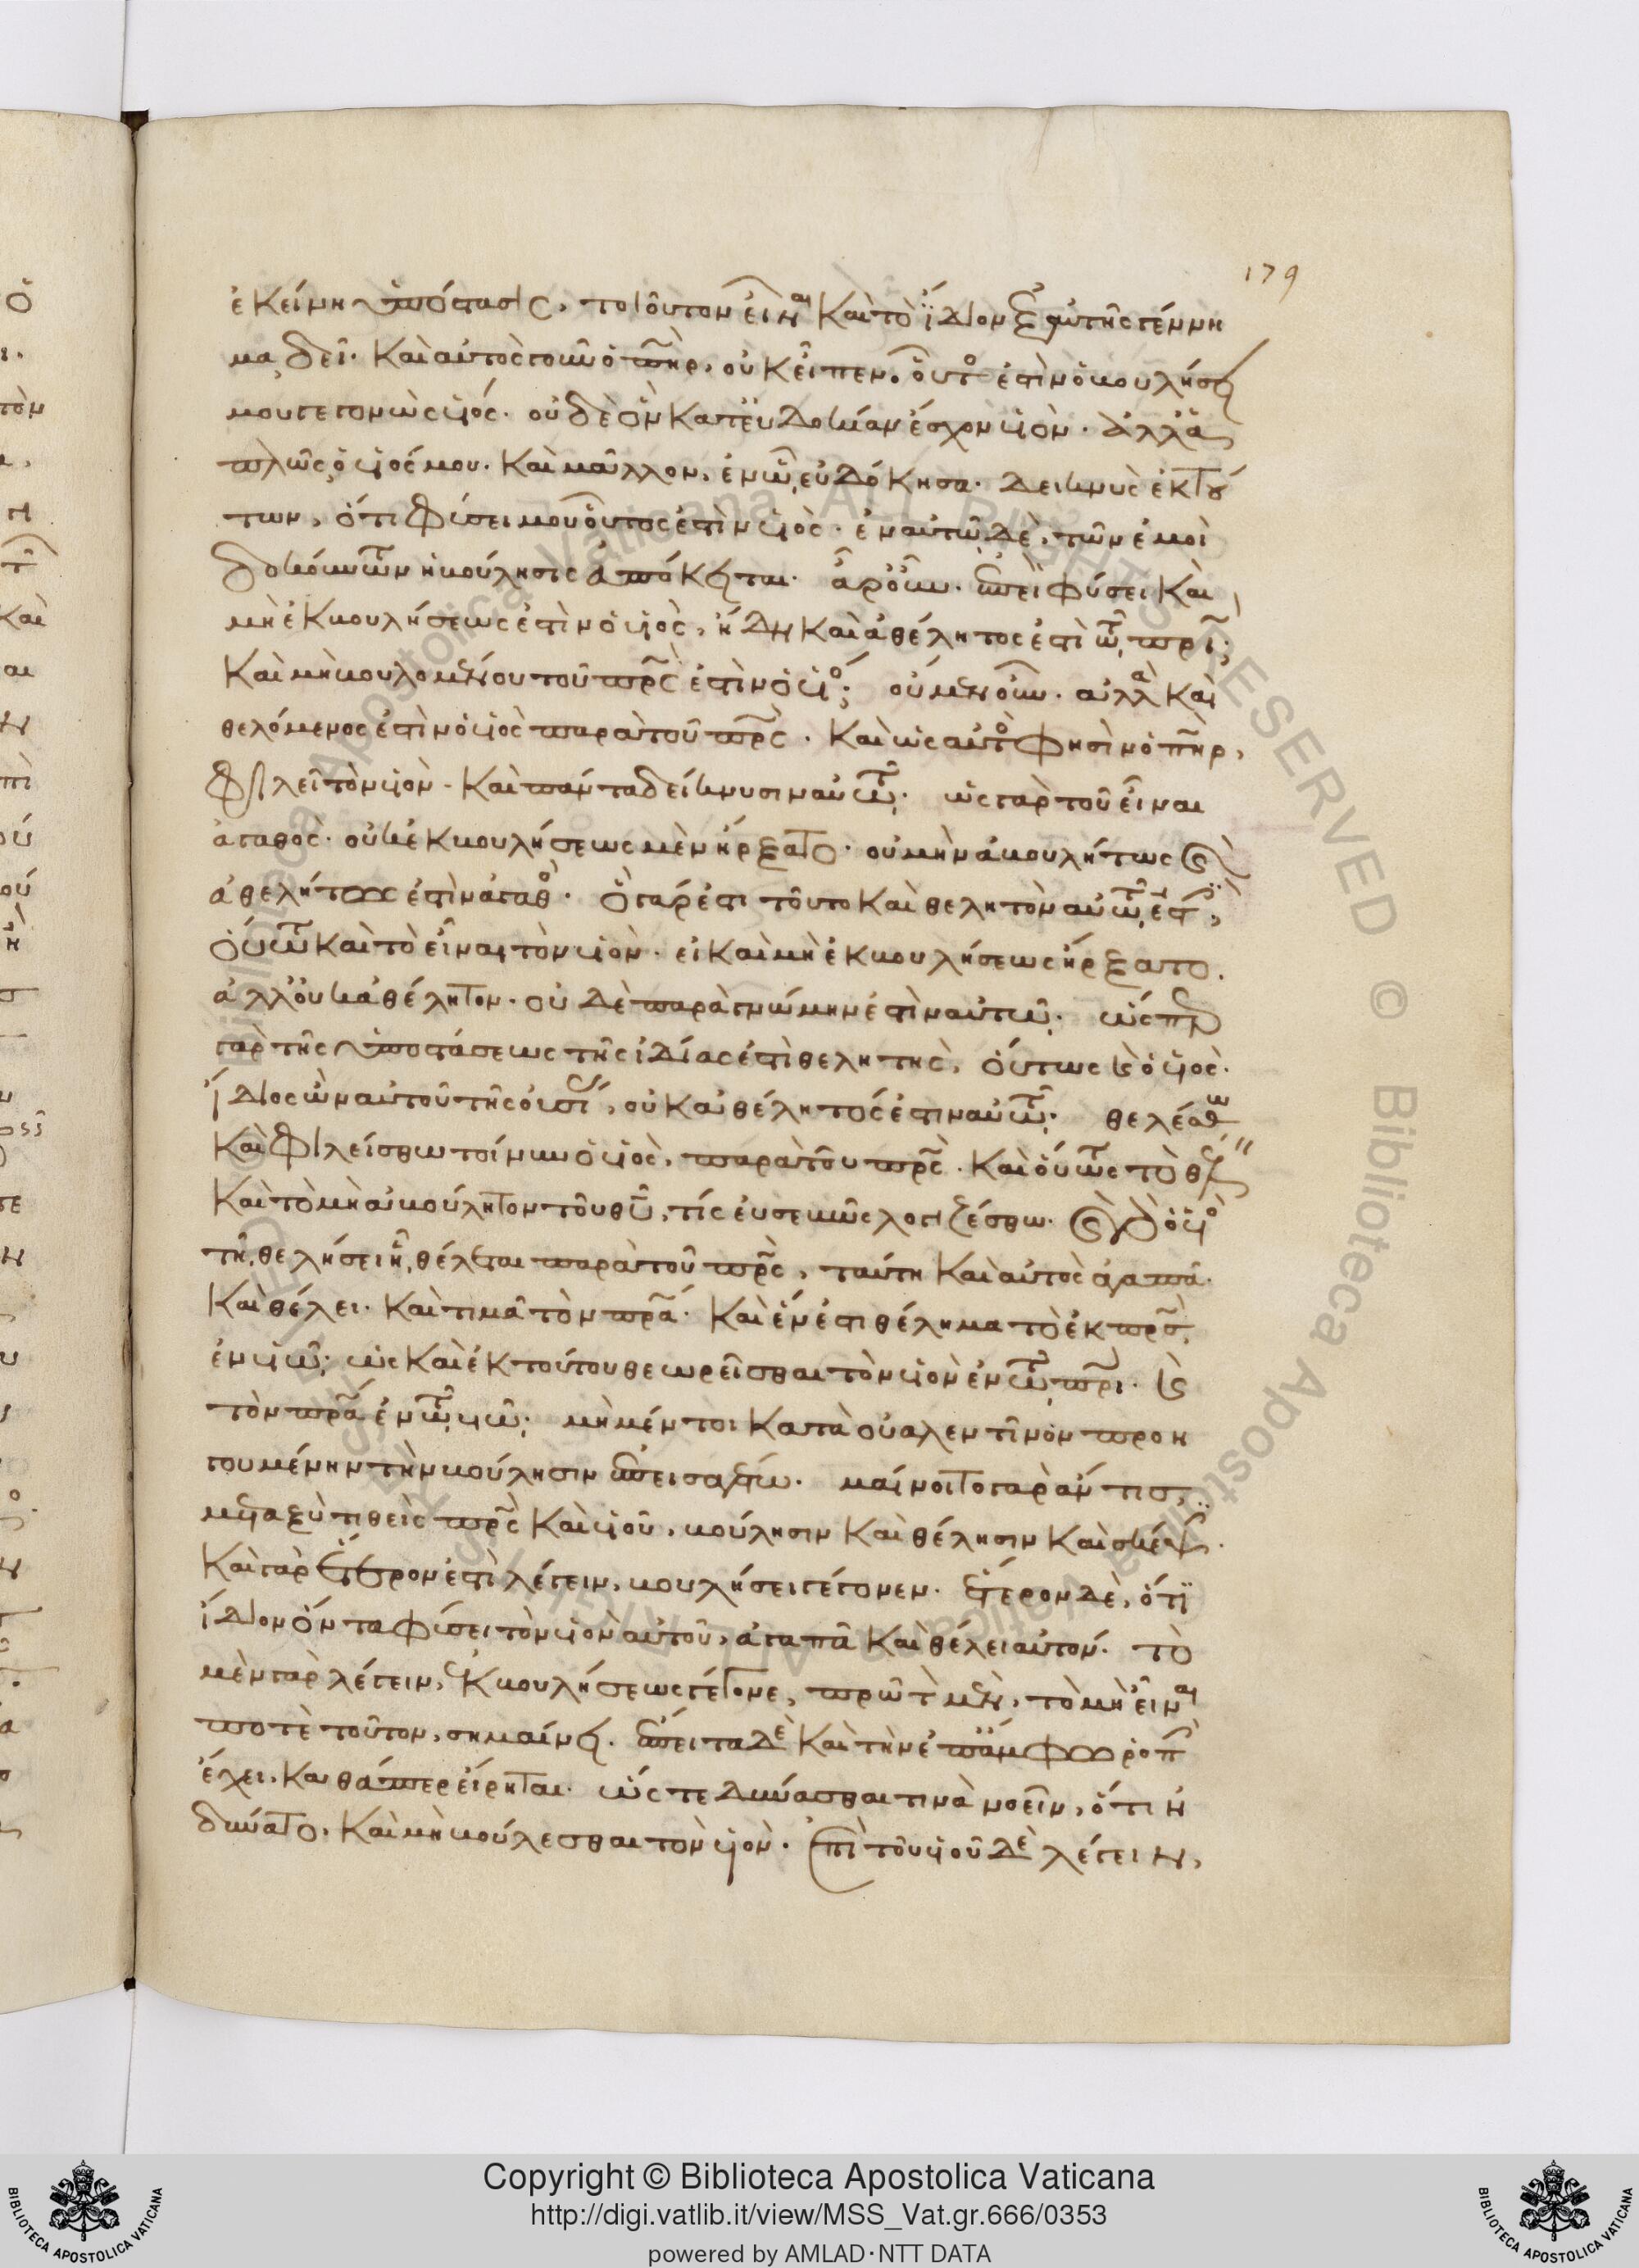 179
ἐκείνη ὑπόστασις, τοιοῦτον εἶναι καὶ τὸ ἴδιον ἐξ αὐτῆς γέννη
μα δεῖ. καὶ αὐτὸς γοῦν ὁ πηρ, οὐκ εἶπεν. οὗτος ἐστὶν ὁ βουλήσει
μου γεγονὼς υἱός. οὐδὲ ὃν κατ' εὐδοκίαν ἔσχον υἱὸν. ἀλλ' ἁ
πλῶς ὁ υἱός μου. καὶ μᾶλλον, ἐν ᾧ εὐδόκησα. δεικνὺς ἐκ τού
των, ὅτι φύσει μου οὗτος ἐστὶν υἱὸς. ἐν αὐτῷ δὲ, τῶν ἐμοὶ
δοκούντων ἡ βούλησις ἀπόκειται. ἆρ' οὖν. ἐπεὶ φύσει καὶ
μὴ ἐκ βουλήσεως ἐστὶν ὁ υἱὸς, ἤδη καὶ ἀθέλητος ἐστὶ τῷ πρι;
καὶ μὴ βουλομένου τοῦ πρς ἐστὶν ὁ υἱός; οὐμενοῦν. ἀλλὰ καὶ
θελόμενος ἐστὶν ὁ υἱὸς παρὰ τοῦ πρς. καὶ ὡς αὐτός φησὶν ὁ πηρ,
φιλεῖ τὸν υἱὸν. καὶ πάντα δείκνυσιν αὐτῷ. ὡς γὰρ τοῦ εἶναι
ἀγαθὸς. οὐκ ἐκ βουλήσεως μὲν ἤρξατο. οὐ μὴν ἀβουλήτως καὶ
ἀθελήτως ἐστὶν ἀγαθός. ὃ γάρ ἐστι τοῦτο καὶ θελητὸν αὐτῷ ἐστι,
οὕτω καὶ τὸ εἶναι τὸν υἱὸν. εἰ καὶ μὴ ἐκ βουλήσεως ἤρξατο.
ἀλλ' οὐκ ἀθέλητον. οὐδὲ παρὰ γνώμην ἐστὶν αὐτῷ. ὥσπερ
γὰρ τῆς ὑποστάσεως τῆς ἰδίας ἐστὶ θελητης, οὕτως καὶ ὁ υἱὸς.
ἴδιος ὢν αὐτοῦ τῆς οὐσίας, οὐκ ἀθέλητός ἐστιν αὐτῷ. θελέσθω
καὶ φιλείσθω τοίνυν ὁ υἱὸς, παρὰ τοῦ πρς. καὶ οὕτως τὸ θέλειν
καὶ τὸ μὴ ἀβούλητον τοῦ θυ, τίς εὐσεβῶς λογιζέσθω. καὶ γὰρ ὁ υἱὸς
τῇ θελήσει ᾗ θέλεται παρὰ τοῦ πρς, ταύτη καὶ αὐτὸς ἀγαπᾶ.
καὶ θέλει. καὶ τιμᾶ τὸν πρα. καὶ ἕν ἐστι θέλημα τὸ ἐκ πρς,
ἐν υἱῷ. ὡς καὶ ἐκ τούτου θεωρεῖσθαι τὸν υἱὸν ἐν τῷ πρι. καὶ
τὸν πρα ἐν τῷ υἱῷ. μὴ μέντοι κατὰ οὐαλεντῖνον προη
γουμένην τὴν βούλησιν ἐπεισαγέτω. μαίνοιτο γὰρ ἄν τις,
μεταξὺ τιθεὶς πρς καὶ υἱοῦ, βούλησιν καὶ θέλησιν καὶ σκέψιν.
καὶ γὰρ ἕτερον ἐστὶ λέγειν, βουλήσει γέγονεν. ἕτερον δὲ, ὅτι
ἴδιον ὄντα φύσει τὸν υἱὸν αὐτοῦ, ἀγαπᾶ καὶ θέλει αὐτόν. τὸ
μὲν γὰρ λέγειν, ἐκ βουλήσεως γέγονε, πρῶτον μὲν, τὸ μὴ εἶναι
ποτὲ τοῦτον, σημαίνει. ἔπειτα δὲ καὶ τὴν ἐπ' ἄμφω ῥοπὴν
ἔχει. καθάπερ εἴρηται. ὥστε δύνασθαι τινὰ νοεῖν, ὅτι ἠ
δύνατο, καὶ μὴ βούλεσθαι τὸν υἱὸν. ἐπὶ τοῦ υἱοῦ δὲ λέγειν,
Copyright © Biblioteca Apostolica Vaticana
http://digi.vatlib.it/view/MSS_Vat.gr.666/0353
powered by AMLAD·NTT DATA